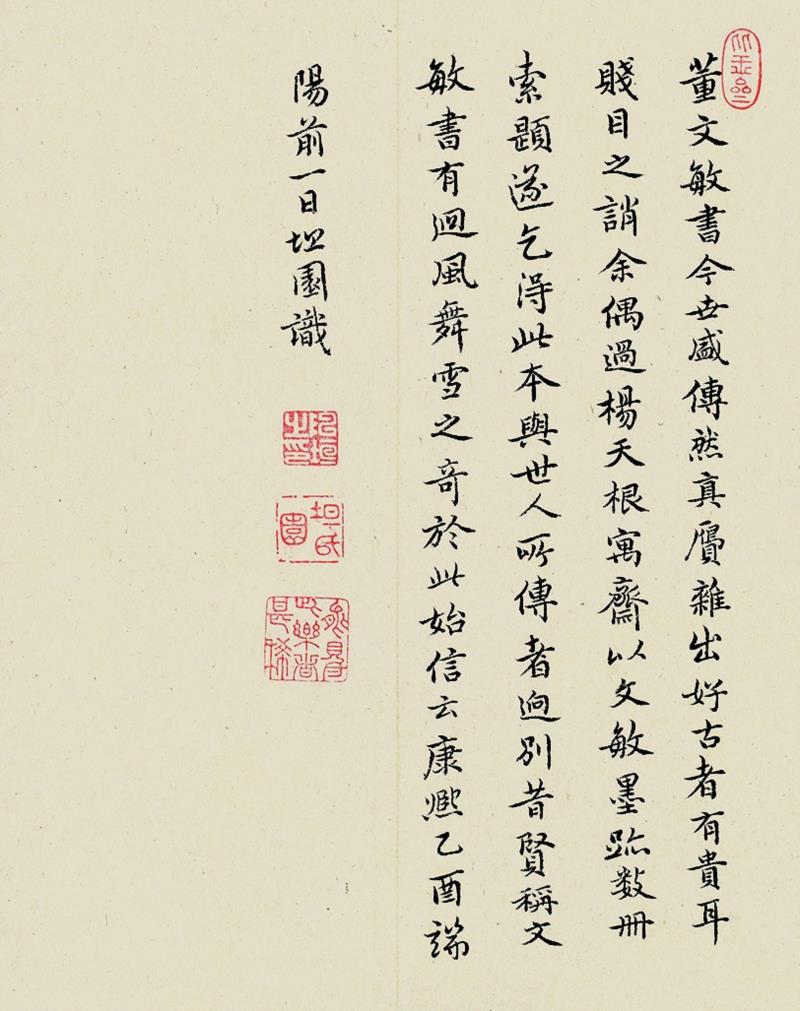 董文敏書今世盛傳然真贗雜出好古者有貴耳
賤目之誚余偶過楊天根寓齋以文敏墨跡數冊
索題遂乞得此本與世人所傳者迥別昔賢稱文
敏書有迴風舞雪之奇於此始信云康熙乙酉端
陽前一日坦園識
坦氏園